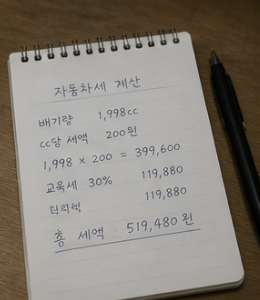 자동차세 계산
배기량 1,998cc
cc당 세액 200원
1,998 × 200 = 399,600
교육세 30% 119,880
119,880
총 세액 519,480원